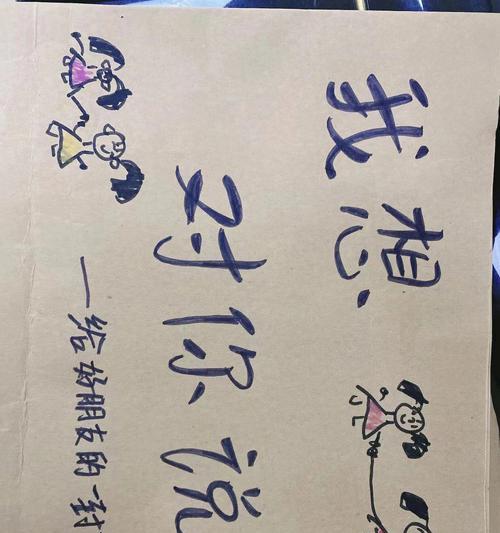 我想
对你说
一给好朋友的一封